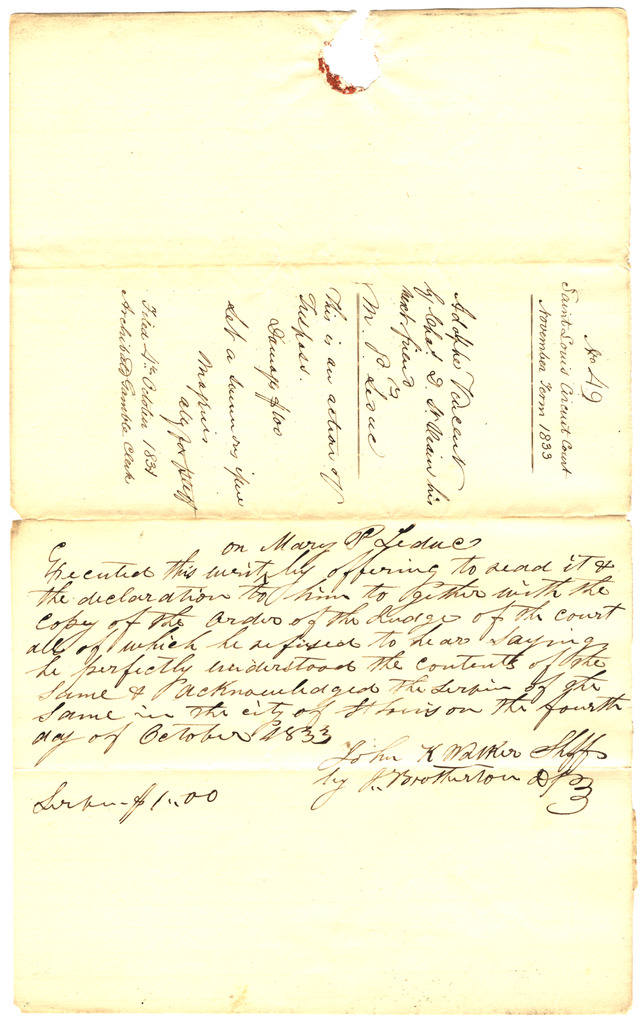 No 49
Saint Louis Circuit Court
November Term 1833
Adolphe Vincent
by Chas. D. St Vrain his
next friend
vs
M. P. Leduc
This is an action of
Trespass.
Damages $100
Let a summons issue
Mappin
atty for pltff
Filed 4th October 1831
Archibald Gamble Clerk
on Mary P Leduc
Executed this writ by offering to read it &
the declaration to him to gether with the
Copy of the order of the Judge of the court
all of which he refused to hear saying
he perfectly understood the contents of the
same & acknowledged the Servin of the
same in the city of St Louis on the fourth
day of October 1833
John K Walker Shff
by J. Brotherton D
Servin $1.00